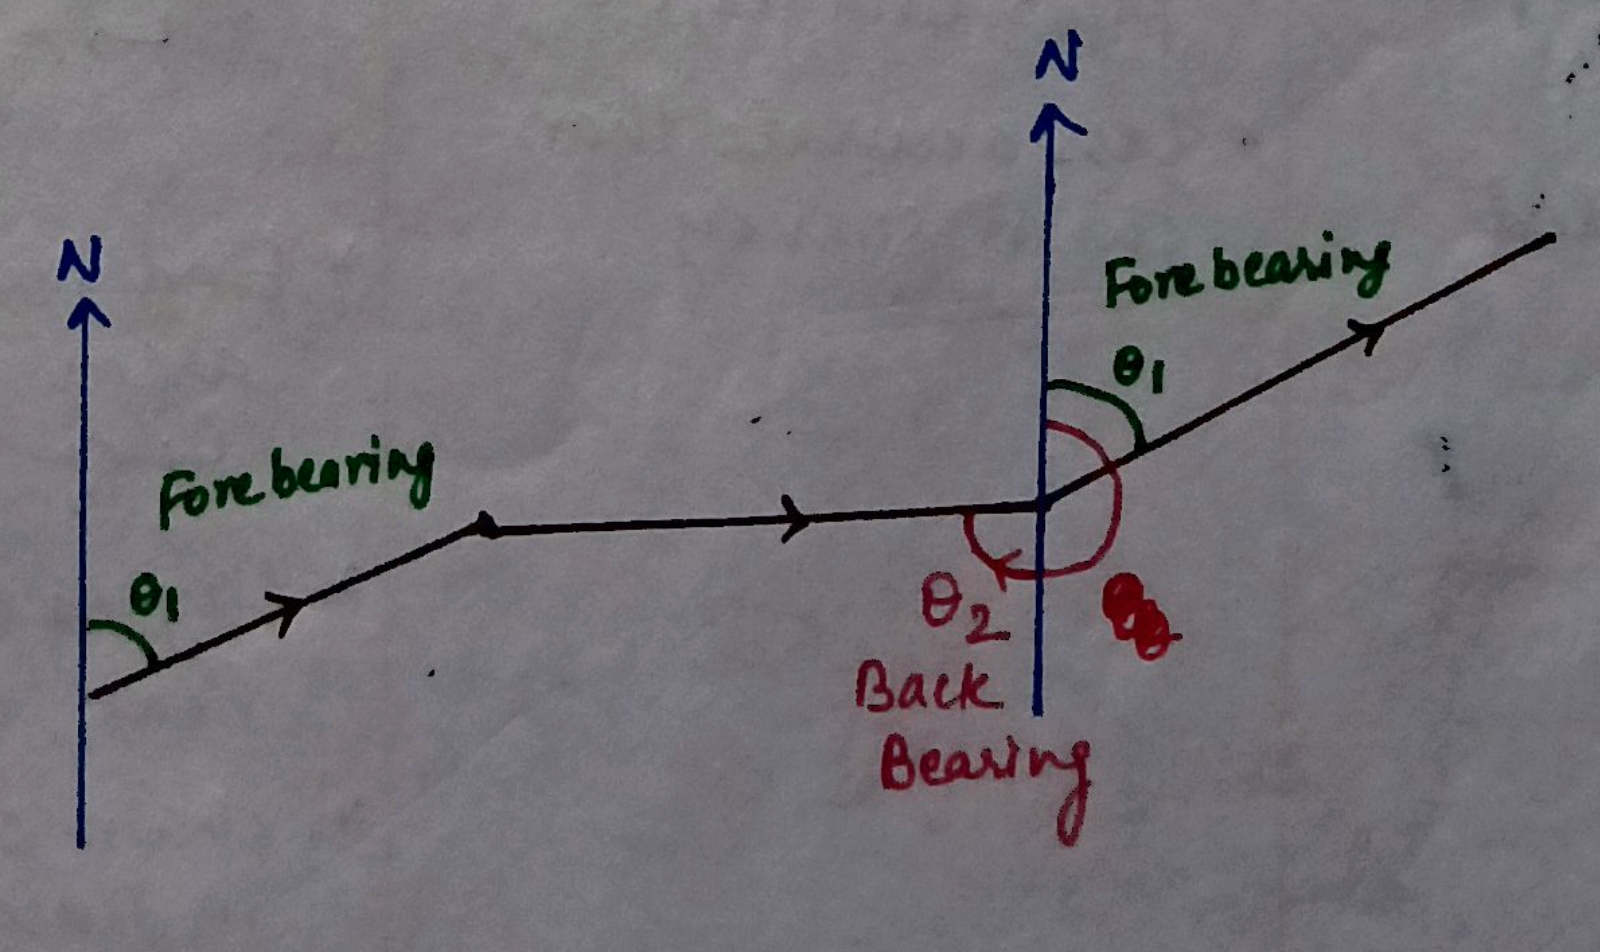 N
N
Fore bearing
θ1
Fore bearing
θ1
θ2
Back
Bearing